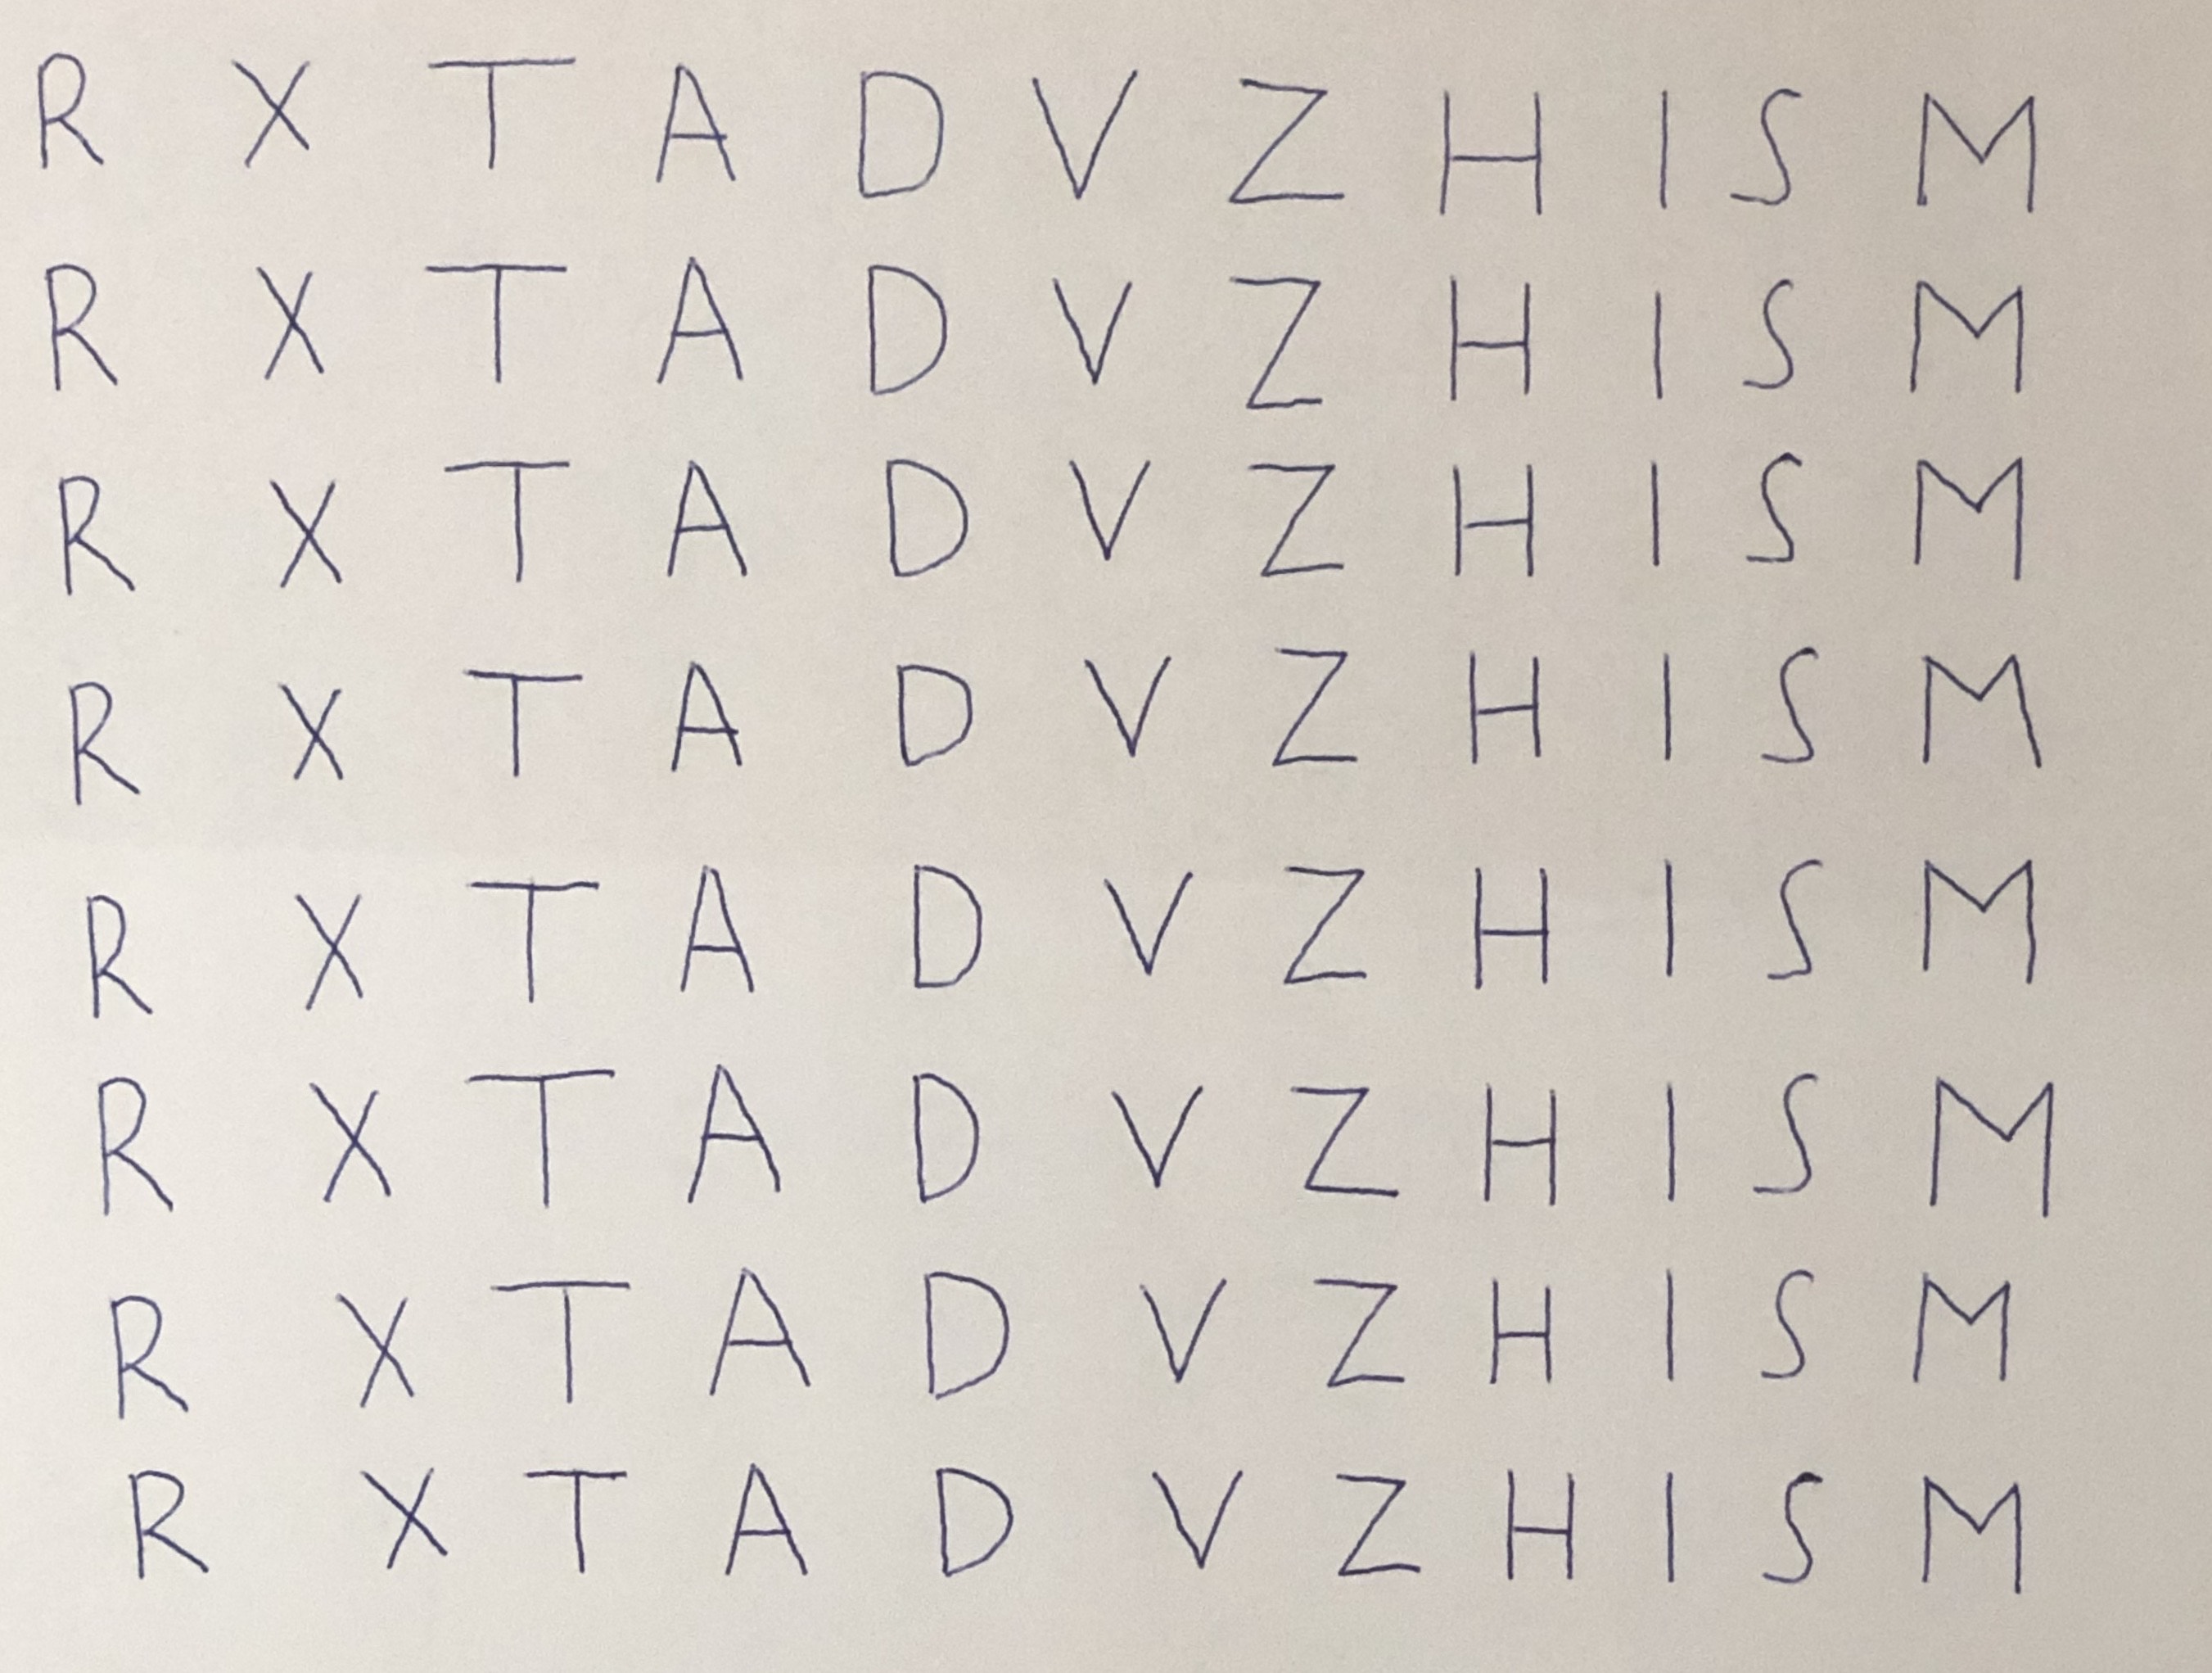 R X T A D V Z H I S M
R X T A D V Z H I S M
R X T A D V Z H I S M
R X T A D V Z H I S M
R X T A D V Z H I S M
R X T A D V Z H I S M
R X T A D V Z H I S M
R X T A D V Z H I S M